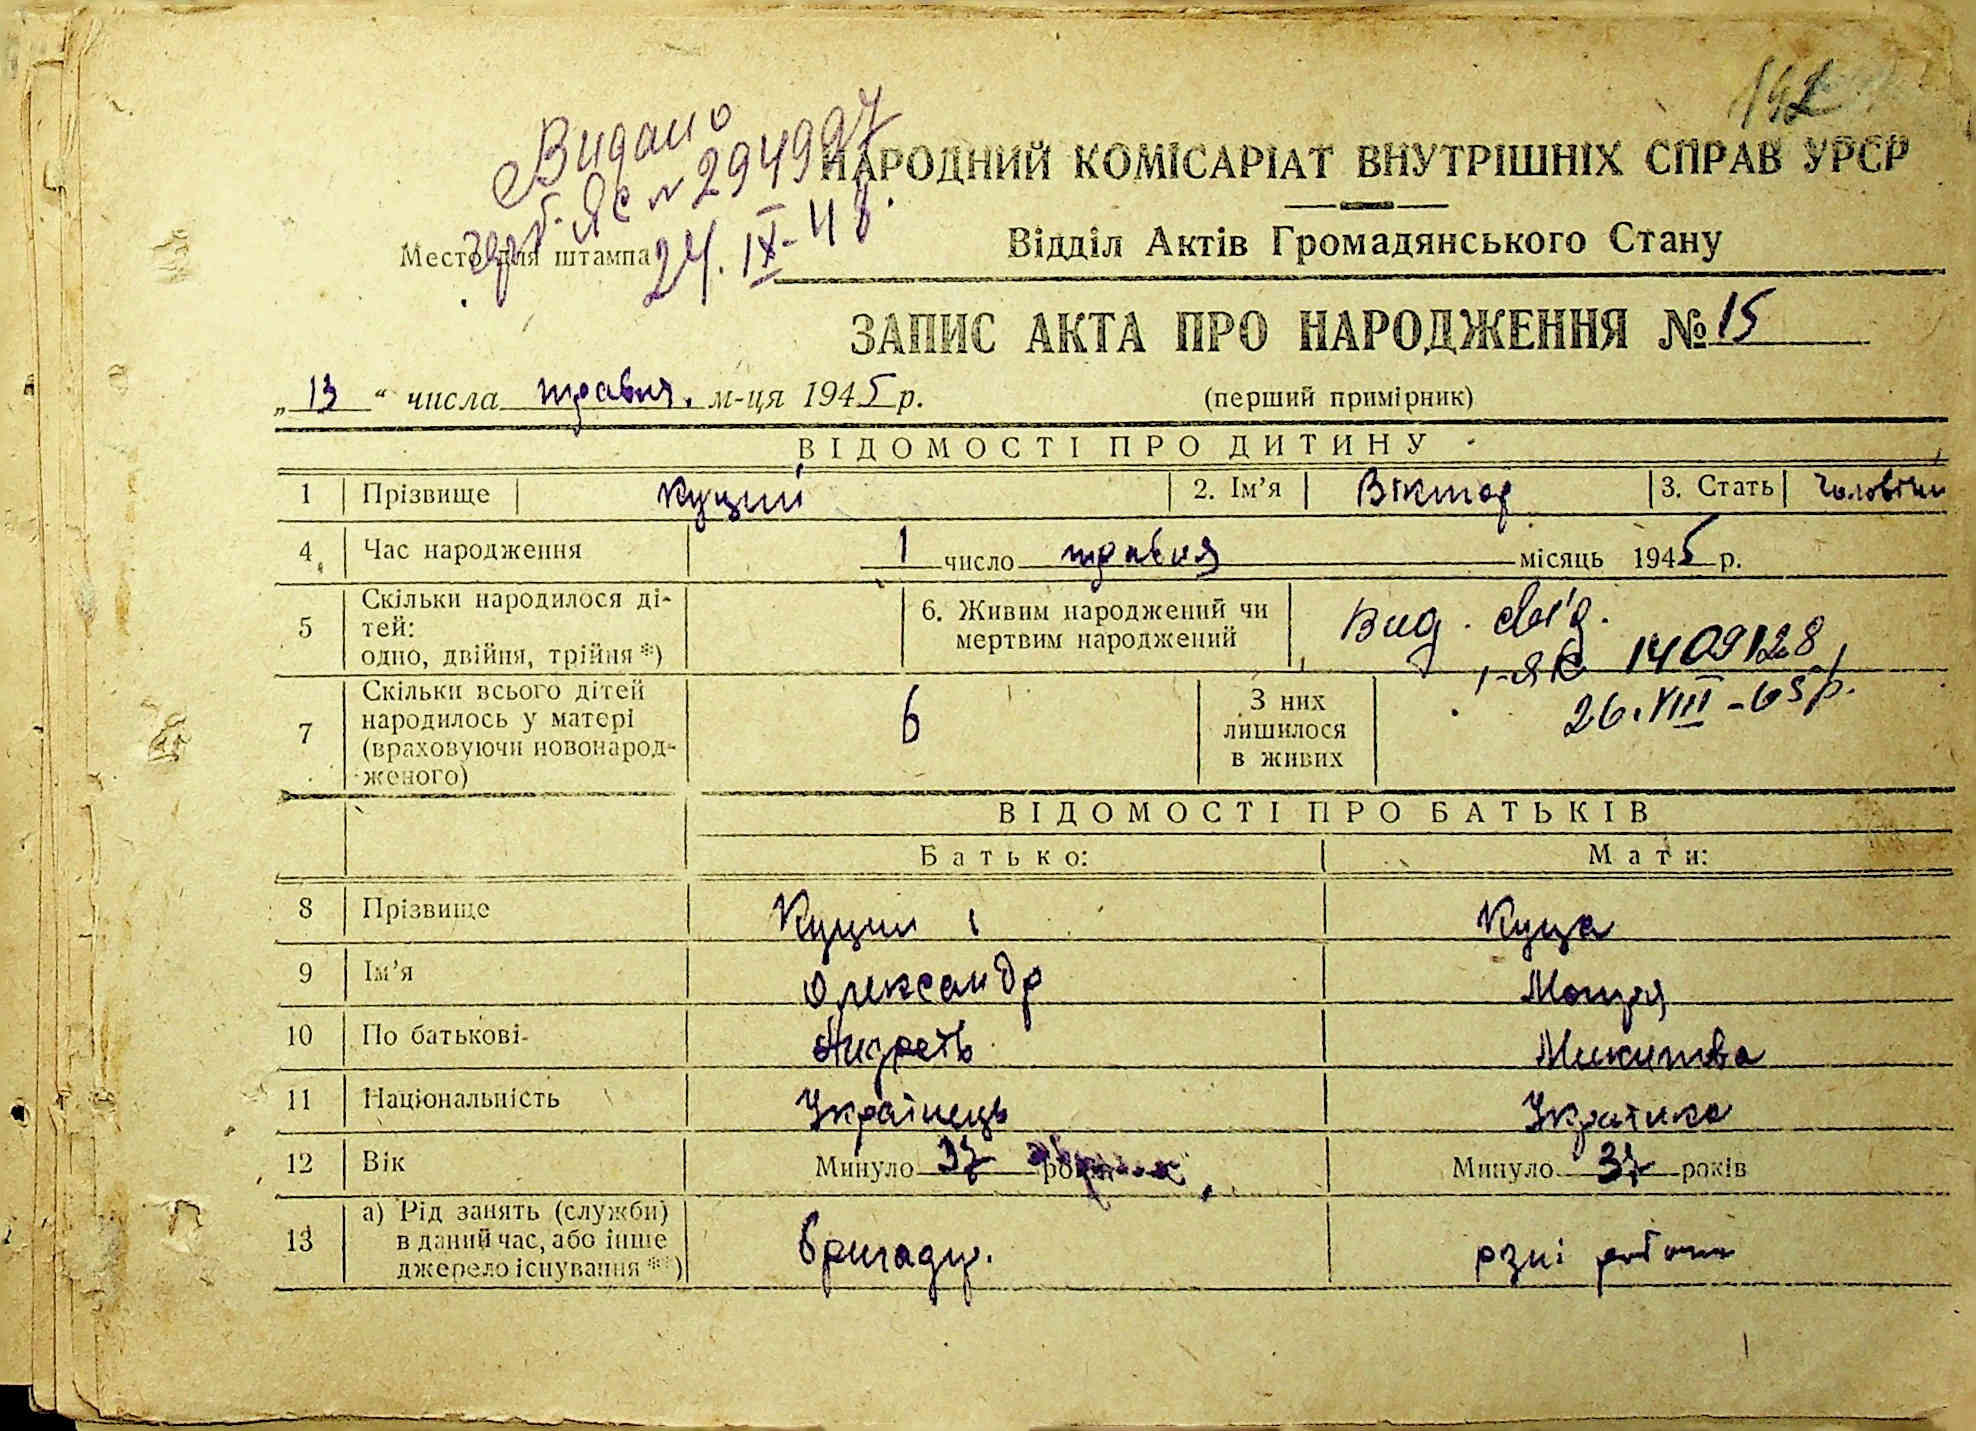 142
Видано
ЯС № 294997
24. IX-48.
НАРОДНИЙ КОМІСАРІАТ ВНУТРІШНІХ СПРАВ УРСР
Место для штампа
Відділ Актів Громадянського Стану
ЗАПИС АКТА ПРО НАРОДЖЕННЯ № 15
„ 13 “ числа травня. м-ця 1945 р.
(перший примірник)
ВІДОМОСТІ ПРО ДИТИНУ
1 Прізвище Куций 2. Ім’я Віктор 3. Стать Чоловічи
4 Час народження 1 число травня місяць 1945 р.
5 Скільки народилося ді-
тей:
одно, двійня, трійня *)
6. Живим народжений чи
мертвим народжений
Вид. свід.
I-ЯК 1409128
26.VIII-65р.
7 Скільки всього дітей
народилось у матері
(враховуючи новонарод-
женого)
6
З них
лишилося
в живих
ВІДОМОСТІ ПРО БАТЬКІВ
Батько: Мати:
8 Прізвище Куций Куца
9 Ім’я Олександр Мотря
10 По батькові Микитва
11 Національність Українець Українка
12 Вік Минуло 37 Минуло 37 років
13 а) Рід занять (служби)
в даний час, або інше
джерело існування **)
бригадир. рзні роботи